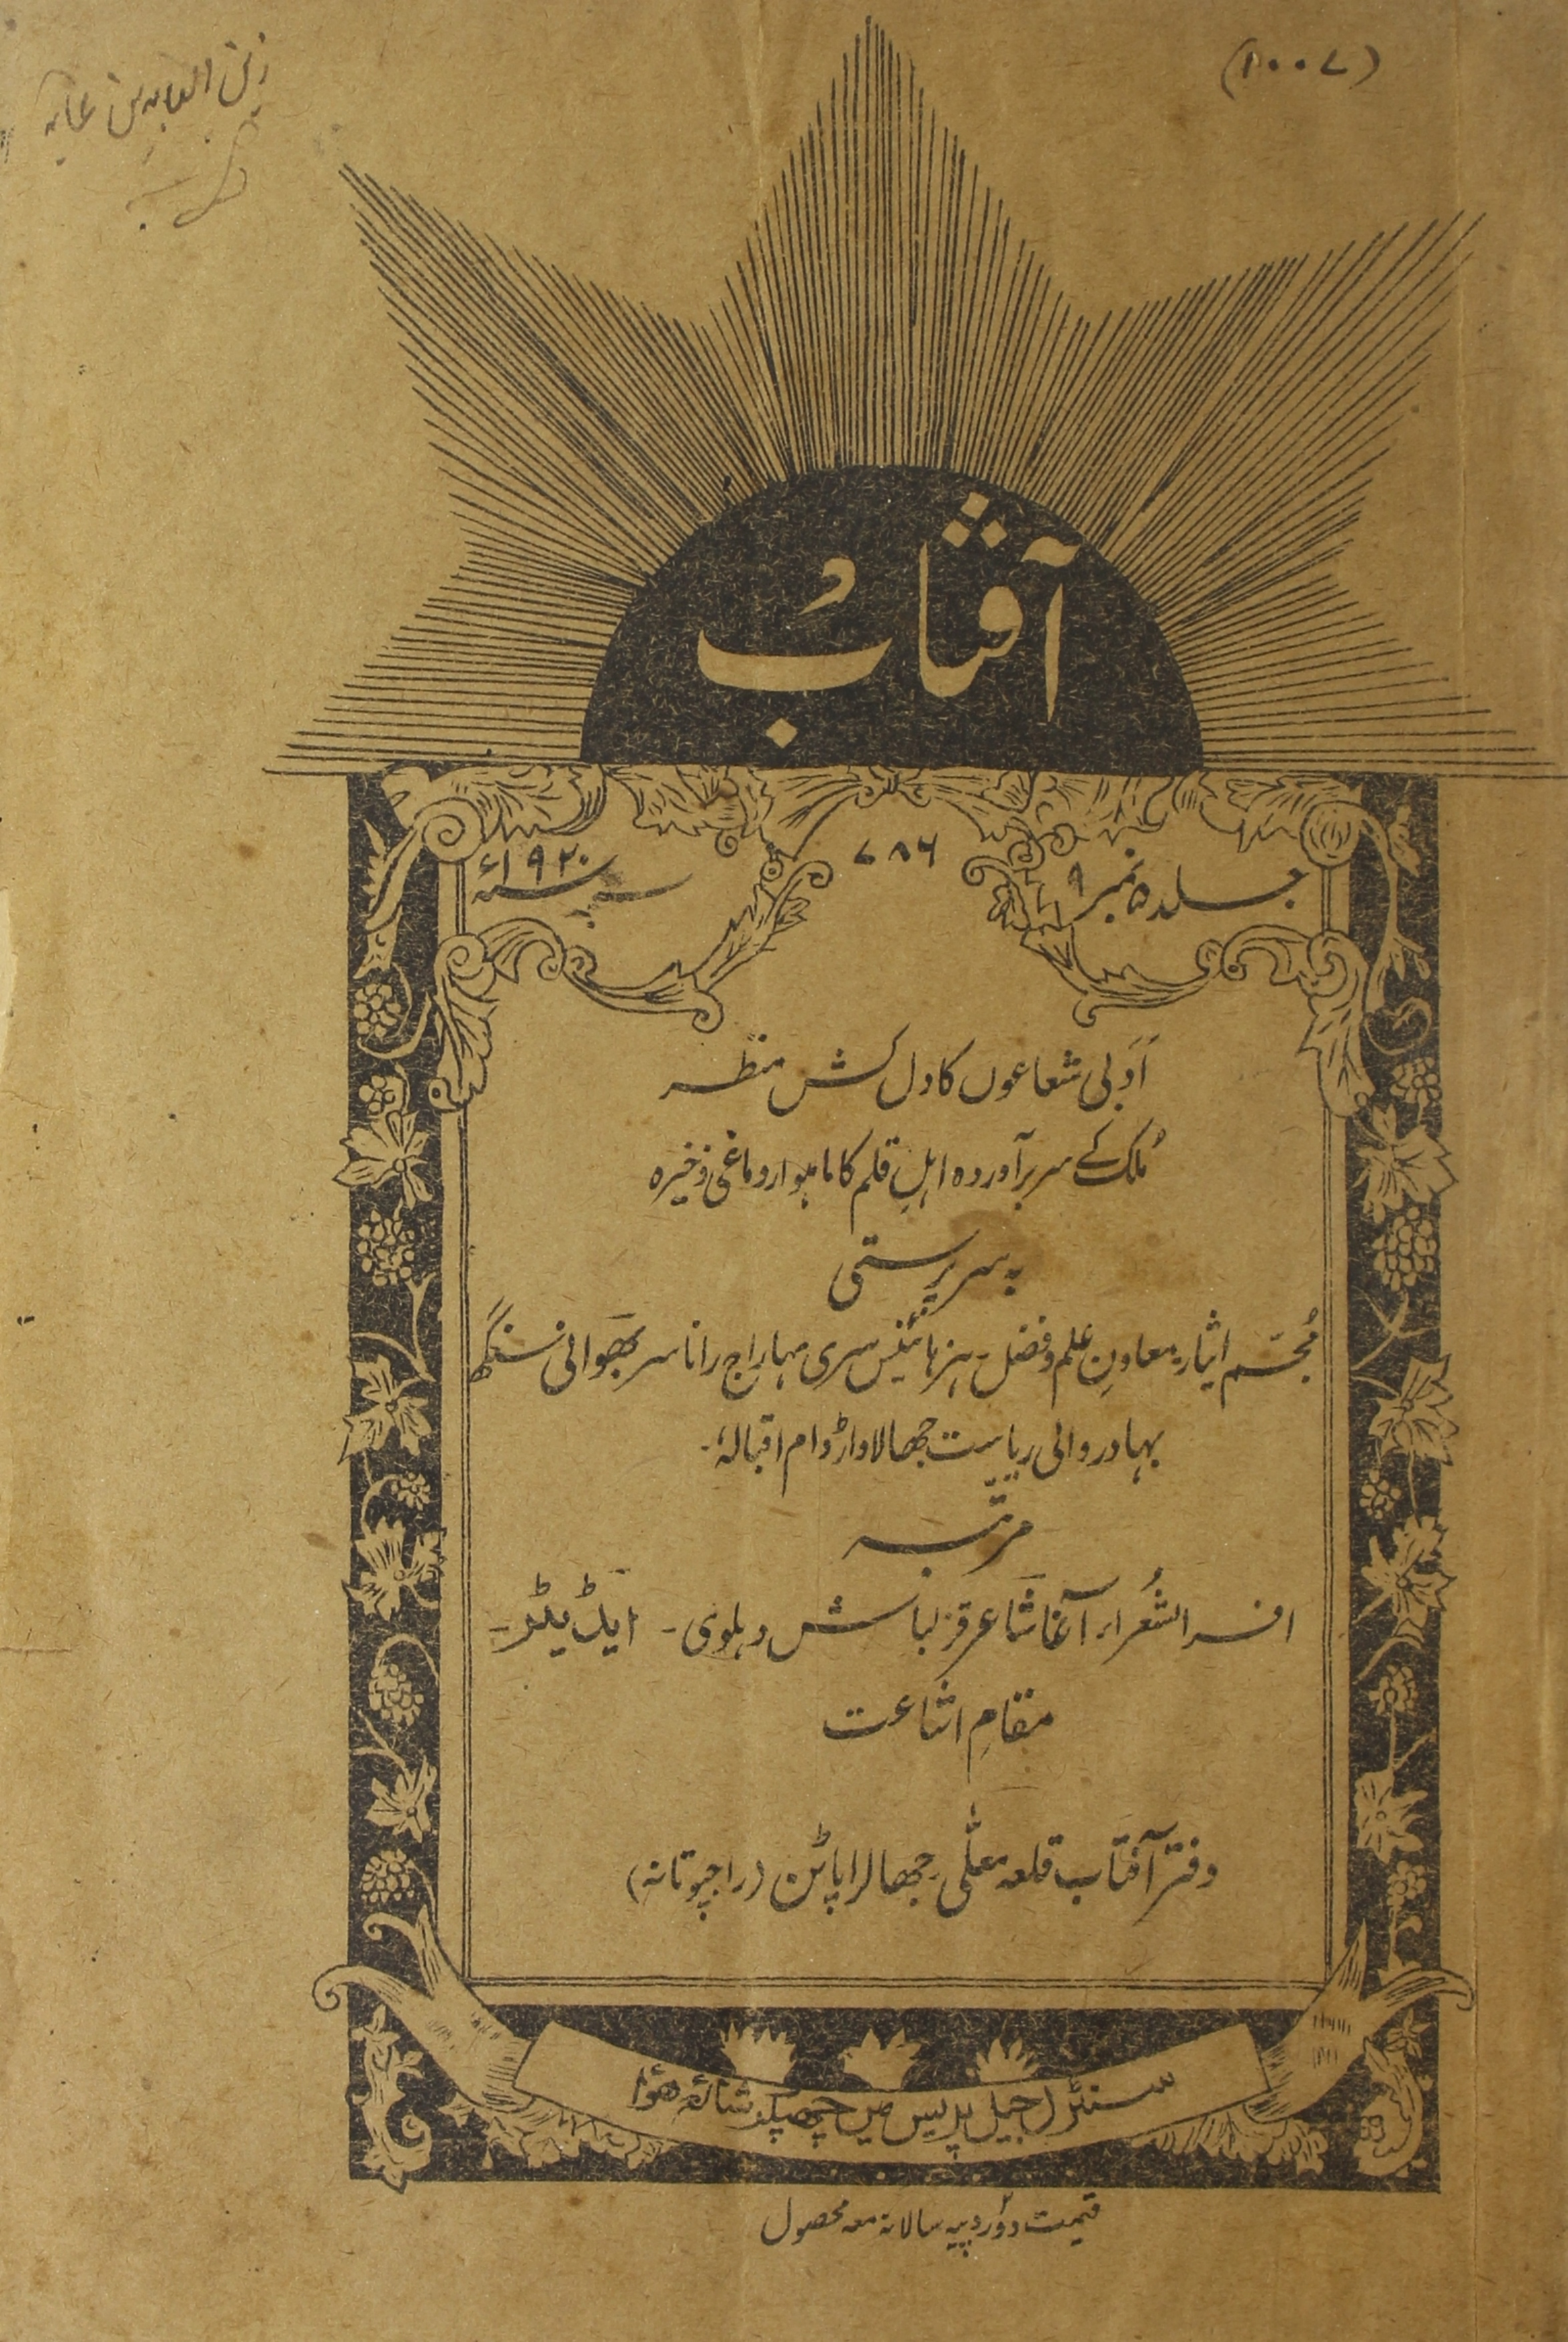 (۱۰۰۷)
زین العابدین
آفتاب
۷۸۶
جلد ۵ نمبر ۹
سنہ ۱۹۲۰ء
اَدَبی شعاعوں کا دل کش منظر
مُلک کے سربرآوردہ اہلِ قلم کا ماہوار دماغی ذخیرہ
بہ سرپرستی
مُجسّم ایثار، معاونِ علم و فضل۔ ہزہائنیس سری مہاراج رانا سر بھَوانی سنگھ
بہادر والی ریاست جھالاواڑ دام اقبالہٗ۔
مرتّبہ
افسر الشُعراء آغا شاعر قزلباش دہلوی۔ ایڈیٹر۔
مقامِ اشاعت
دفتر آفتاب قلعہ معلّٰی جھالراپاٹن (راجپوتانہ)
سنٹرل جیل پریس میں چھپکر شائع ہوا
قیمت دو روپیہ سالانہ معہ محصول